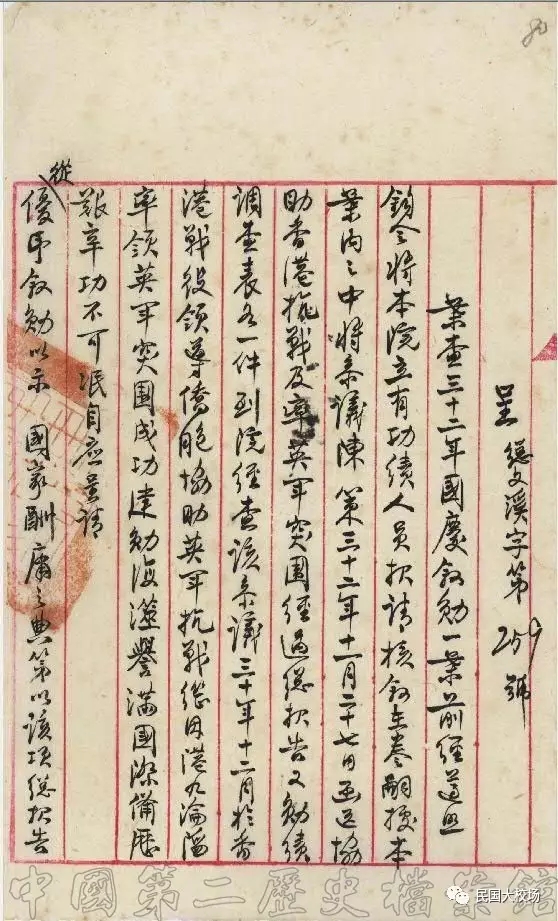 80
呈 總文溪字第259號
案查三十二年國慶敘勛一案前經遵照
鈞令將本院立有功績人員報請核敘在卷嗣據本
案內之中將參議陳 策三十二年十一月二十七日函送協
助香港抗戰及率英軍突圍經過總報告又勛績
調查表各一件到院經查該參議三十年十二月於香
港戰役領導僑胞協助英軍抗戰繼因港九淪陷
率領英軍突圍成功建勛海澨譽滿國際備歷
艱辛功不可泯自應呈請
從優予敘勛以示 國家酬庸之典第以該項總報告
中國第二歷史檔案館
民国大校场